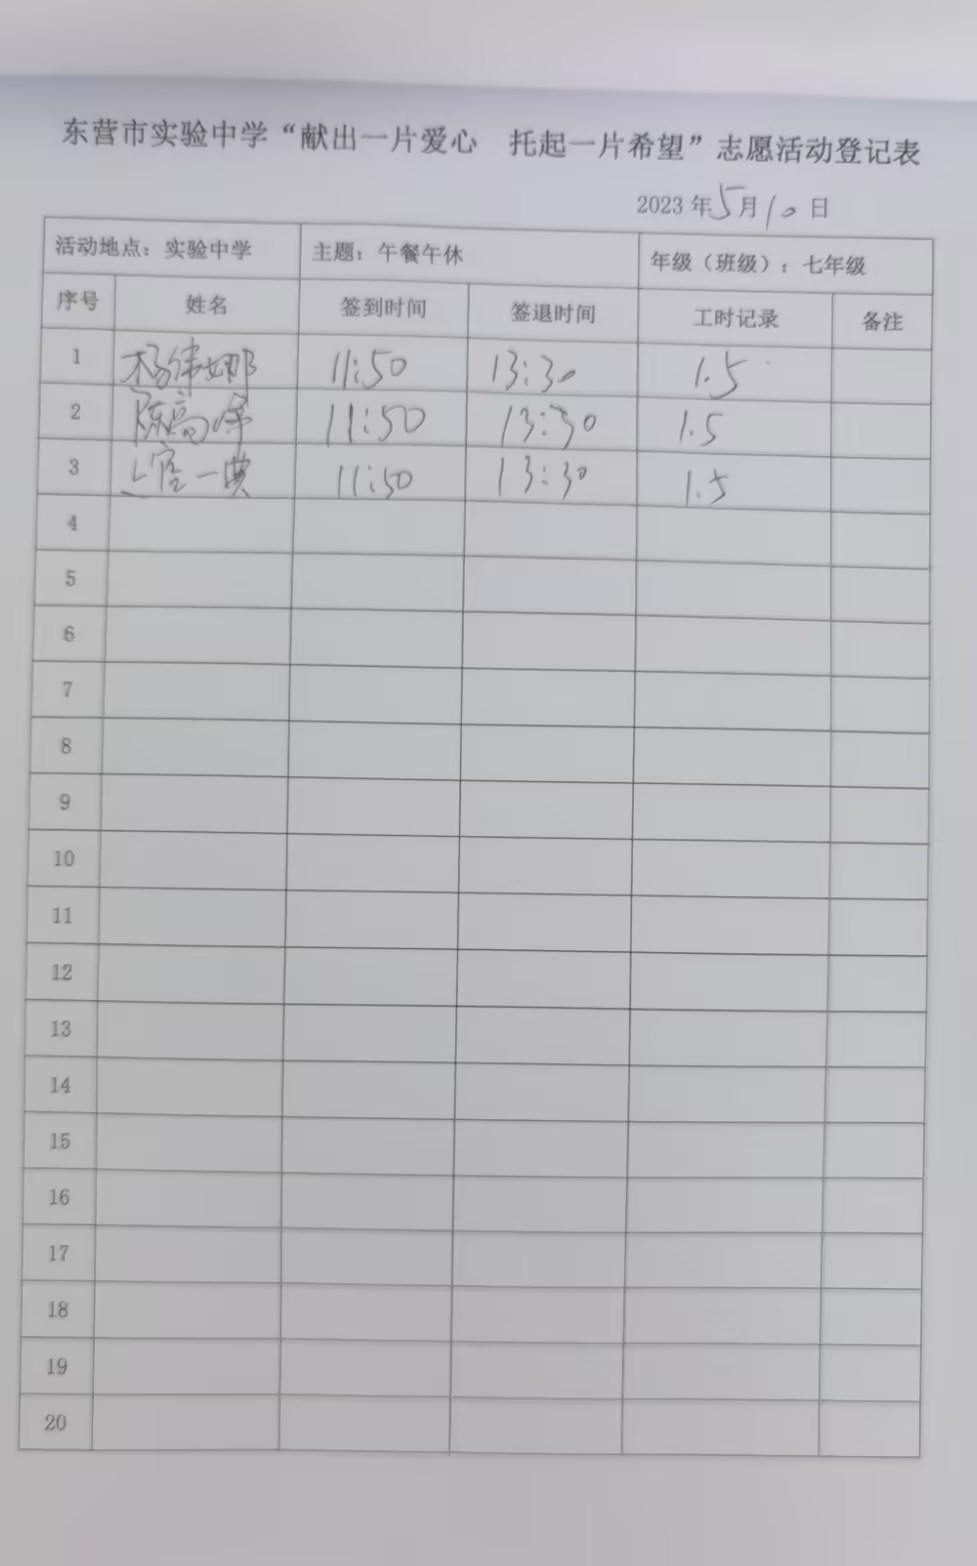 东营市实验中学“献出一片爱心 托起一片希望”志愿活动登记表
2023 年 5 月 10 日
活动地点：实验中学 主题：午餐午休 年级（班级）：七年级
序号 姓名 签到时间 签退时间 工时记录 备注
1 杨伟娜 11:50 13:30 1.5
2 陈高峰 11:50 13:30 1.5
3 上官一典 11:50 13:30 1.5
4
5
6
7
8
9
10
11
12
13
14
15
16
17
18
19
20